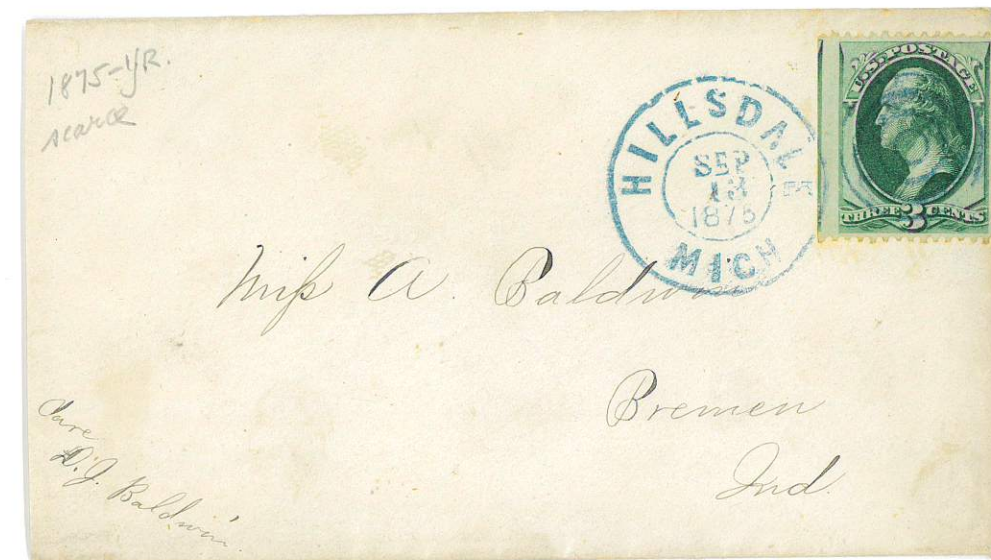 1875-yR.
scarce
HILLSDALE
SEP
13
1875
MICH
U.S. POSTAGE
THREE 3 CENTS
Miss A. Baldwin
Bremen
Ind.
Care
D. J. Baldwin